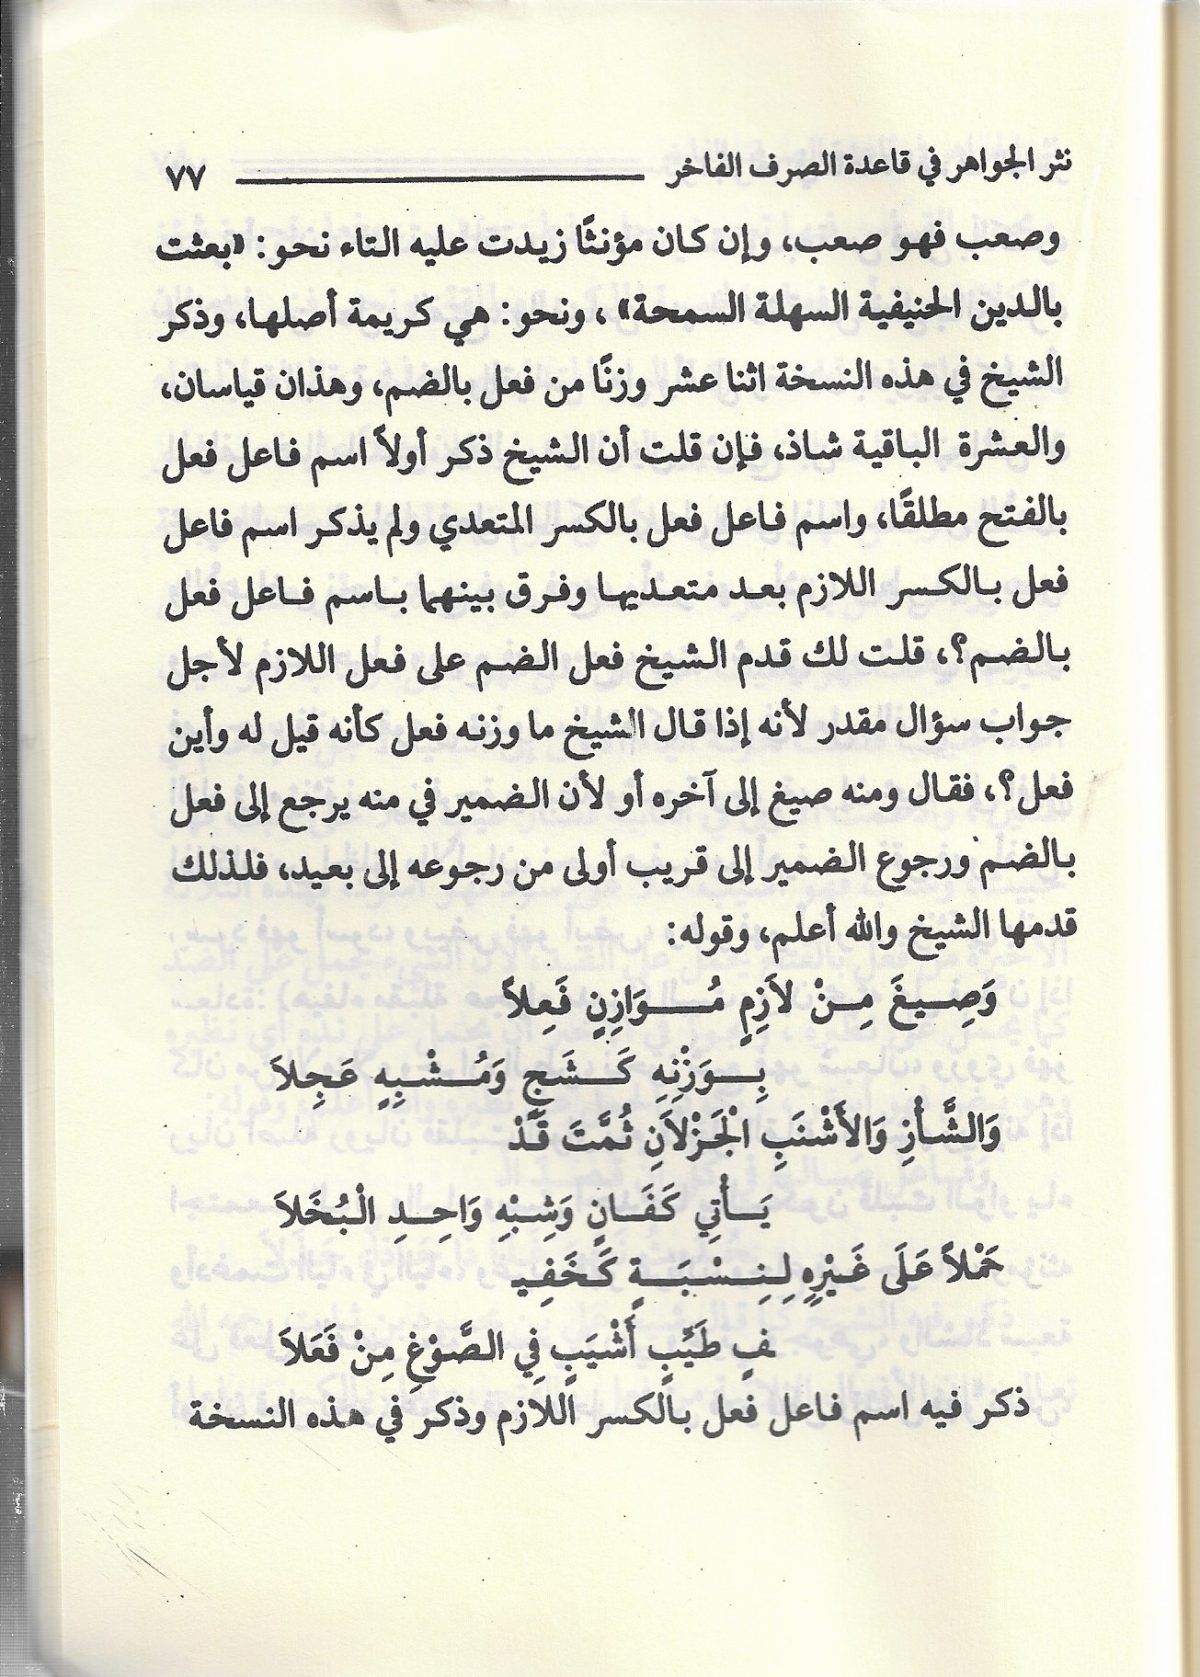 نثر الجواهر في قاعدة الصرف الفاخر ٧٧
وصعب فهو صعب، وإن كان مؤنثًا زيدت عليه التاء نحو: «بعثت
بالدين الحنيفية السهلة السمحة» ، ونحو: هي كريمة أصلها، وذكر
الشيخ في هذه النسخة اثنا عشر وزنًا من فعل بالضم، وهذان قياسان،
والعشرة الباقية شاذ، فإن قلت أن الشيخ ذكر أولاً اسم فاعل فعل
بالفتح مطلقًا، واسم فاعل فعل بالكسر المتعدي ولم يذكر اسم فاعل
فعل بالكسر اللازم بعد متعديها وفرق بينهما باسم فاعل فعل
بالضم؟، قلت لك قدم الشيخ فعل الضم على فعل اللازم لأجل
جواب سؤال مقدر لأنه إذا قال الشيخ ما وزنه فعل كأنه قيل له وأين
فعل؟، فقال ومنه صيغ إلى آخره أو لأن الضمير في منه يرجع إلى فعل
بالضم ورجوع الضمير إلى قريب أولى من رجوعه إلى بعيد، فلذلك
قدمها الشيخ والله أعلم، وقوله:
وَصِيغَ مِنْ لاَزِمٍ مُوَازِنٍ فَعِلاَ
بِوَزْنِهِ كَشَجٍ وَمُشْبِهٍ عَجِلاَ
وَالشَّأْزِ وَالأَشْنَبِ الْجَزْلاَنِ ثُمَّتَ قَدْ
يَأْتِي كَفَانٍ وَشِبْهِ وَاحِدِ الْبُخَلاَ
حَمْلاً عَلَى غَيْرِهِ لِنِسْبَةٍ كَخَفِيـ
ـفٍ طَيِّبٍ أَشْيَبٍ فِي الصَّوْغِ مِنْ فَعَلاَ
ذكر فيه اسم فاعل فعل بالكسر اللازم وذكر في هذه النسخة